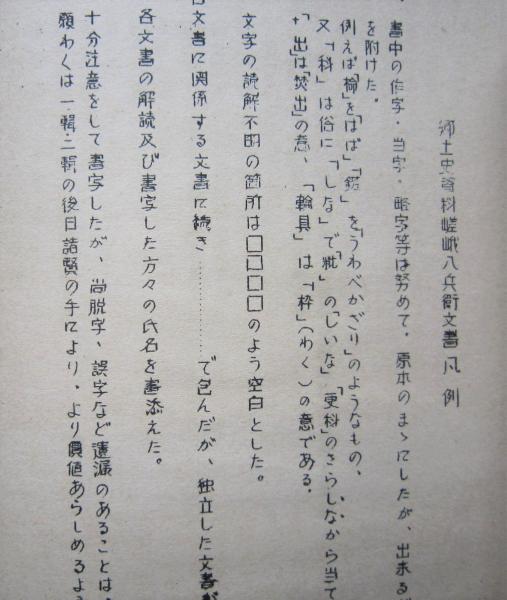 郷土史資料嵯峨八兵衛文書凡例
書中の作字・当字・略字等は努めて、原本のまゝにしたが、出来るだ
を附けた。
例えば「椨」を「はば」「鎧」を「うわべかざり」のようなもの、
又「科」は俗に「しな」で「粃」の「しいな」「更科」のさらしなから当て
「出」は「焚出」の意、「輪具」は「枠」(わく)の意である。
文字の読解不明の箇所は□□□□のよう空白とした。
文書に関係する文書に続き…………で包んだが、独立した文書が
各文書の解読及び書写した方々の氏名を書添えた。
十分注意をして書写したが、尚脱字、誤字など遺漏のあることは、
願わくは一輯・二輯の後日諸賢の手により、より価値あらしめるよう